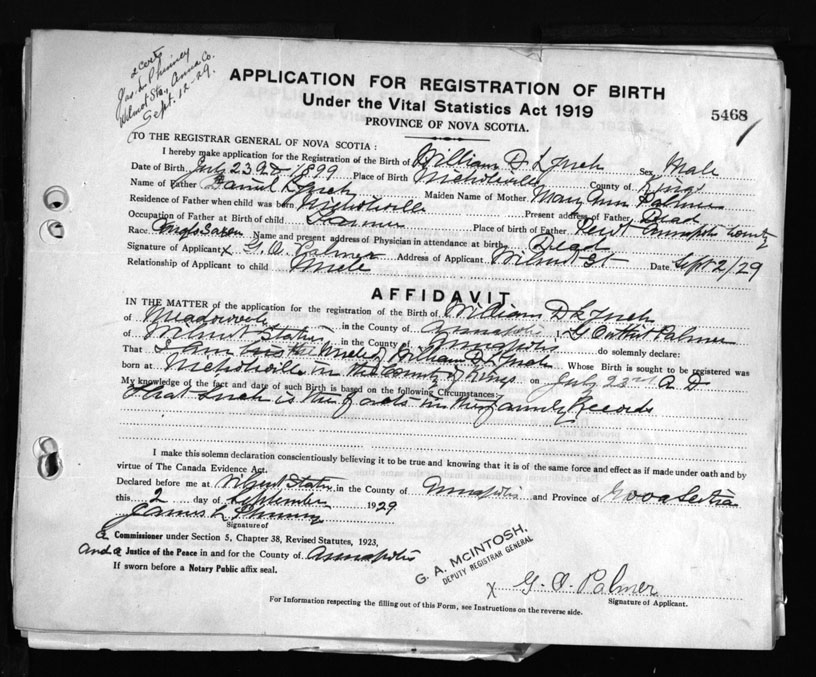 2 certs
Jas. L. Phinney
Wilmot Sta., Anna Co.
Sept. 12 - 29.
APPLICATION FOR REGISTRATION OF BIRTH
Under the Vital Statistics Act 1919
PROVINCE OF NOVA SCOTIA.
5468
TO THE REGISTRAR GENERAL OF NOVA SCOTIA :
I hereby make application for the Registration of the Birth of William D Lynch Sex Male
Date of Birth July 23 A D 1899 Place of Birth Nicholsville County of Kings
Name of Father Daniel Lynch Maiden Name of Mother Mary Ann Palmer
Residence of Father when child was born Nicholsville Present address of Father Dead
Occupation of Father at Birth of child Farmer Place of birth of Father Annapolis County
Race Anglo Saxon Name and present address of Physician in attendance at birth Dead
Signature of Applicant x G. O. Palmer Address of Applicant Wilmot St Date Sept 2/29
Relationship of Applicant to child Uncle
AFFIDAVIT.
IN THE MATTER of the application for the registration of the Birth of William D Lynch
of Meadowvale in the County of Annapolis I, G Palmer
of Wilmot Station in the County of Annapolis do solemnly declare:
That I am the Uncle of William D Lynch Whose Birth is sought to be registered was
born at Nicholsville in the County of Kings on July 23rd A D
My knowledge of the fact and date of such Birth is based on the following Circumstances:
That such is the facts in the family Records
I make this solemn declaration conscientiously believing it to be true and knowing that it is of the same force and effect as if made under oath and by
virtue of The Canada Evidence Act.
Declared before me at Wilmot Station in the County of Annapolis and Province of Nova Scotia
this 2 day of September 1929
James L. Phinney
Signature of
a Commissioner under Section 5, Chapter 38, Revised Statutes, 1923,
and a Justice of the Peace in and for the County of Annapolis
If sworn before a Notary Public affix seal.
G. A. McINTOSH,
DEPUTY REGISTRAR GENERAL
x G. O. Palmer
Signature of Applicant.
For Information respecting the filling out of this Form, see Instructions on the reverse side.